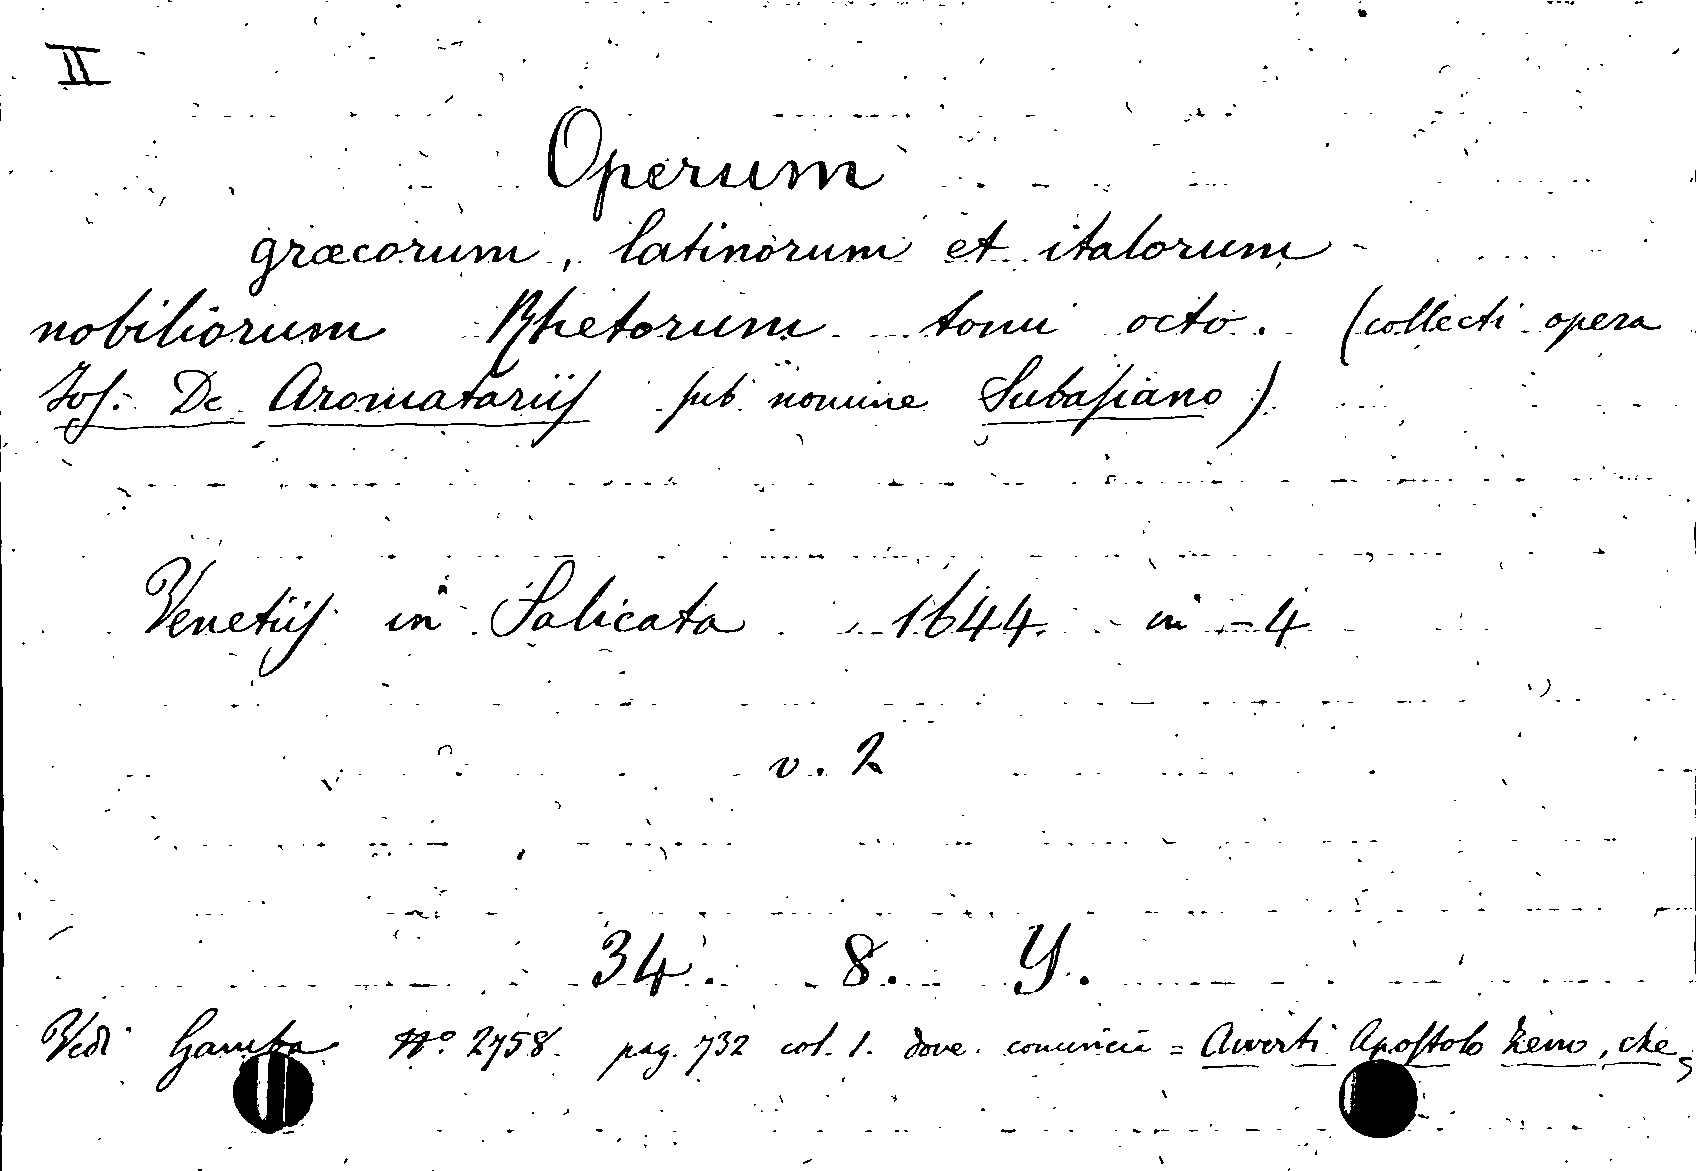 II
Operum
græcorum, latinorum et italorum
nobiliorum Rhetorum tomi octo. (collecti opera
Jos. De Aromatariis sub nomine Subasiano)
Venetiis in Salicata 1644. in-4
v. 2
34. 8. Y.
Vedi Gamba Nº 2758. pag. 732 col. 1. dove comincia = Avverti Apostolo Zeno, che,